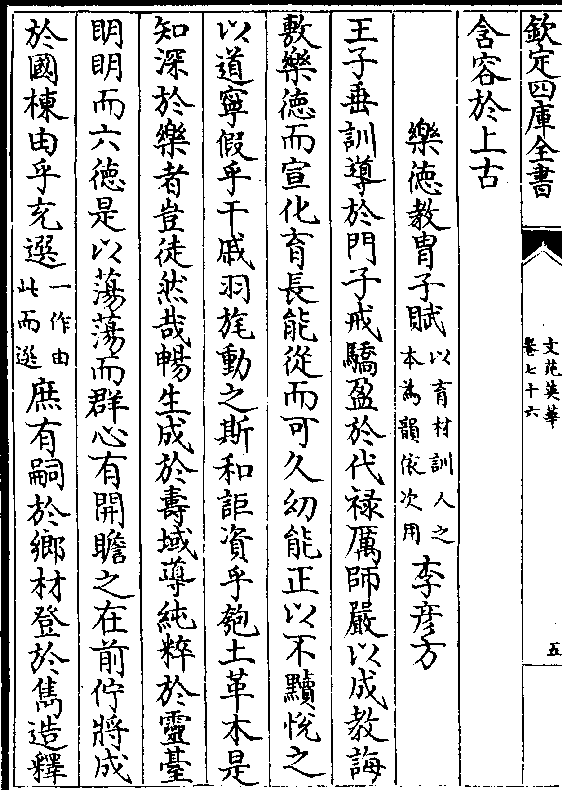 欽定四庫全書
文苑英華
卷七十六
五
含容於上古
樂德教胄子賦以育材訓人之本為韻依次用 李彦方
王子垂訓導於門子戒驕盈於代禄厲師嚴以成教誨
敷樂德而宣化育長能從而可久幼能正以不黷悅之
以道寧假乎干戚羽旄動之斯和詎資乎匏土革木是
知深於樂者豈徒然哉暢生成於壽域導純粹於靈臺
眀眀而六德是以蕩蕩而群心有開瞻之在前佇將成
於國棟由乎充選一作由此而選庶有嗣於鄉材登於雋造釋